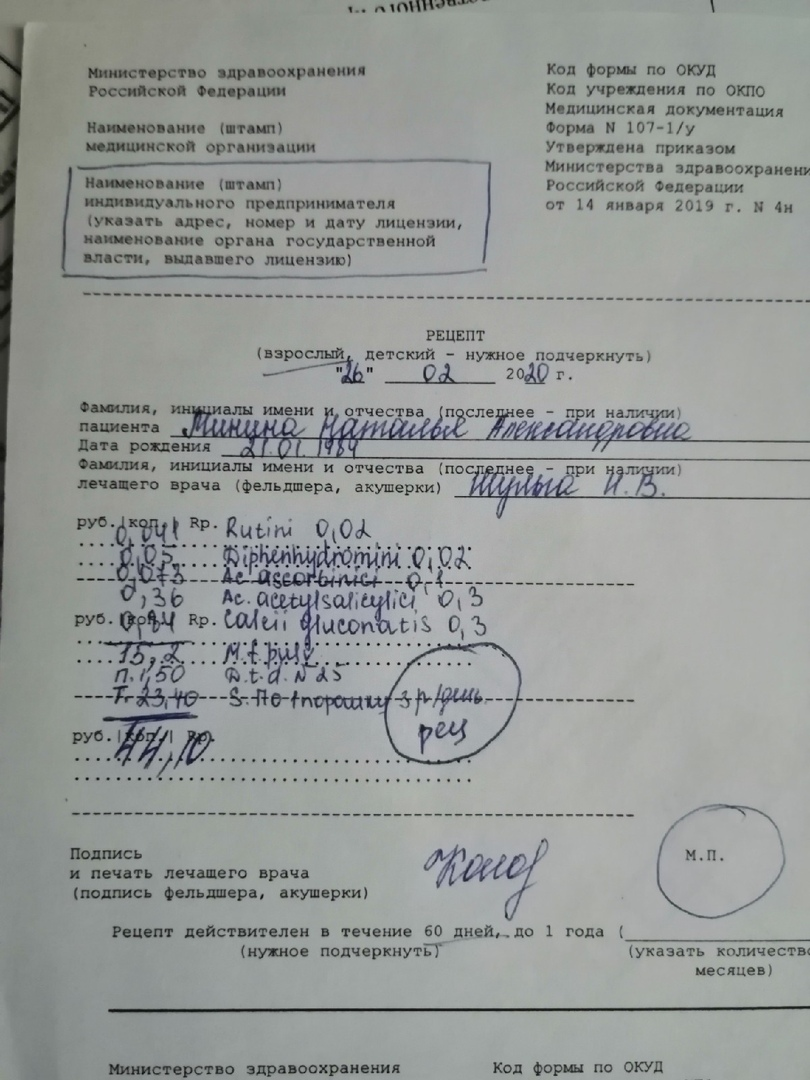 Министерство здравоохранения
Российской Федерации
Наименование (штамп)
медицинской организации
Наименование (штамп)
индивидуального предпринимателя
(указать адрес, номер и дату лицензии,
наименование органа государственной
власти, выдавшего лицензию)
Код формы по ОКУД
Код учреждения по ОКПО
Медицинская документация
Форма N 107-1/у
Утверждена приказом
Министерства здравоохранени
Российской Федерации
от 14 января 2019 г. N 4н
РЕЦЕПТ
(взрослый, детский - нужное подчеркнуть)
"26" 02 2020 г.
Фамилия, инициалы имени и отчества (последнее - при наличии)
пациента Минина Наталья Александровна
Дата рождения 21.01.1984
Фамилия, инициалы имени и отчества (последнее - при наличии)
лечащего врача (фельдшера, акушерки) Шульга И.В.
руб.|коп.| Rp. Rutini 0,02
0,041
0,05 Diphenhydromini 0,02
0,073 Ac ascorbinici 0,1
0,36 Ac. acetylsalicylici 0,3
руб.|коп.| Rp. Calcii gluconatis 0,3
15,2 M.f. pulv.
П. 1,50 D.t.d. N 25
Т. 23,40 S. По 1 порошку 3 р/день
руб.|коп.| Rp. рец
44,10
Подпись
и печать лечащего врача
(подпись фельдшера, акушерки)
М.П.
Рецепт действителен в течение 60 дней, до 1 года (
(нужное подчеркнуть)
(указать количество
месяцев)
Министерство здравоохранения
Код формы по ОКУД